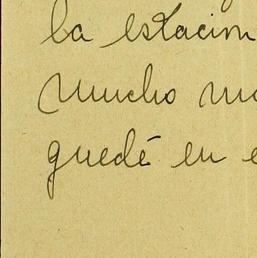 la estacion
mucho m
quedé en e